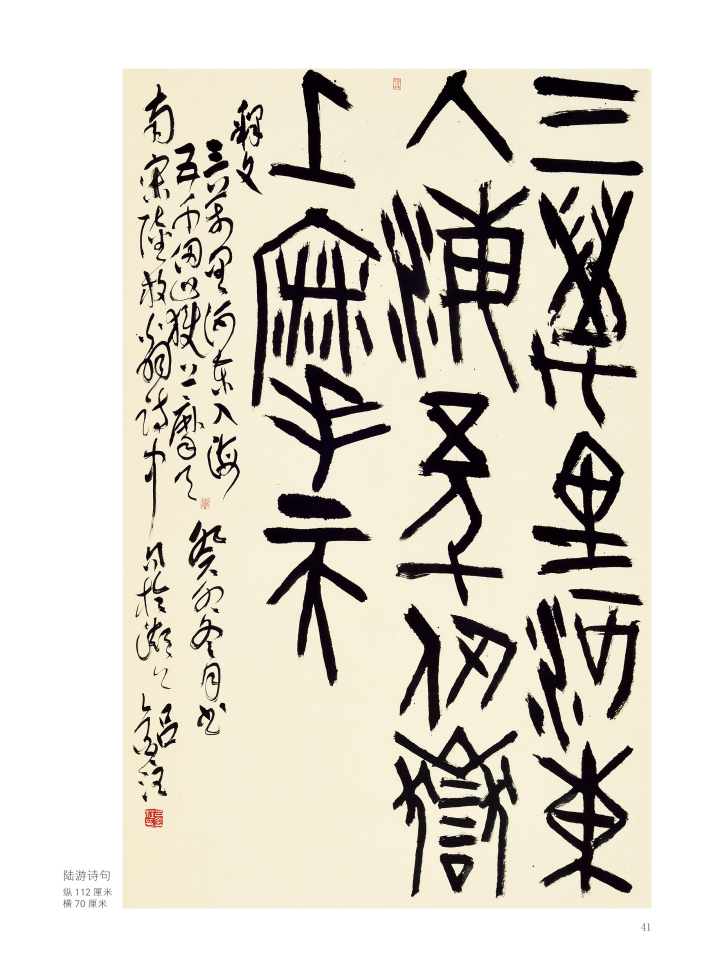 三萬里河東
入海五千仞嶽
上摩天
釋文
三萬里河東入海
五千仞嶽上摩天 癸卯冬月书
南宋陸放翁詩中
陆游诗句
纵 112 厘米
横 70 厘米
41